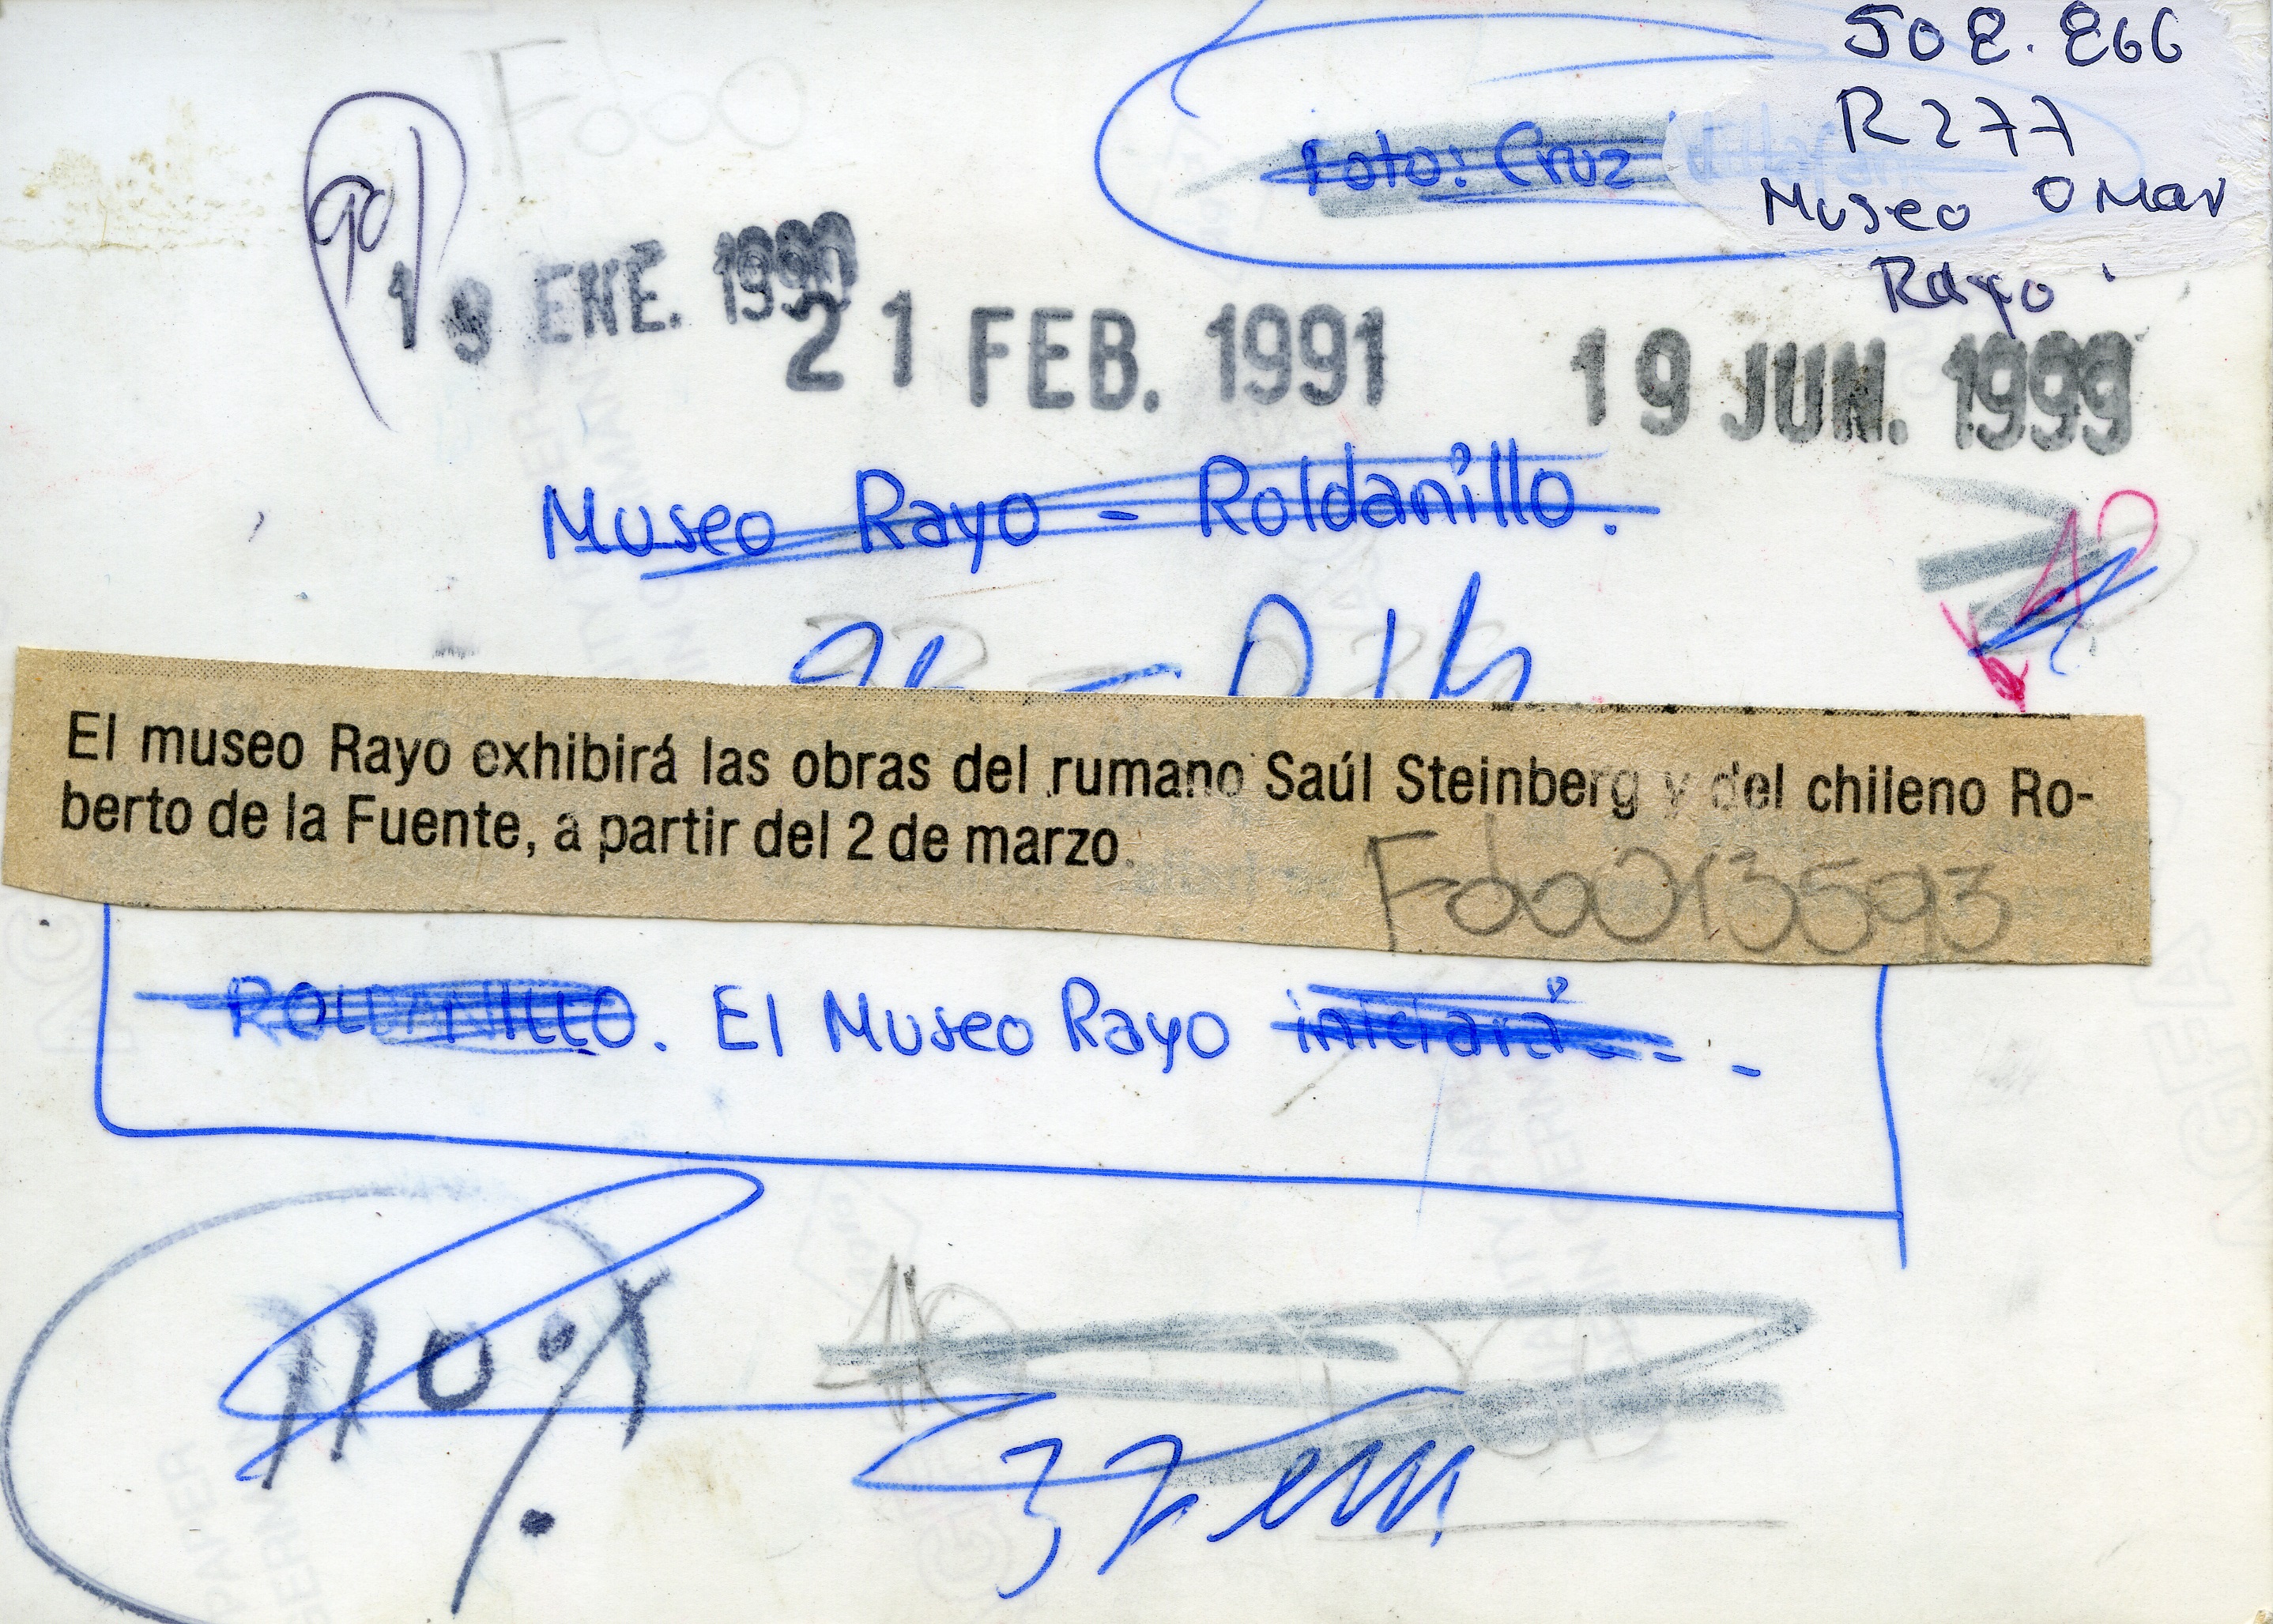 508.866
R277
Museo Omar
Rayo
Fdoo
Foto: Cruz
90
19 ENE. 1990
21 FEB. 1991
19 JUN. 1999
Museo Rayo - Roldanillo.
El museo Rayo exhibirá las obras del rumano Saúl Steinberg y del chileno Ro-
berto de la Fuente, a partir del 2 de marzo.
Fdo013593
ROLDANILLO. El Museo Rayo iniciará - - -
110%